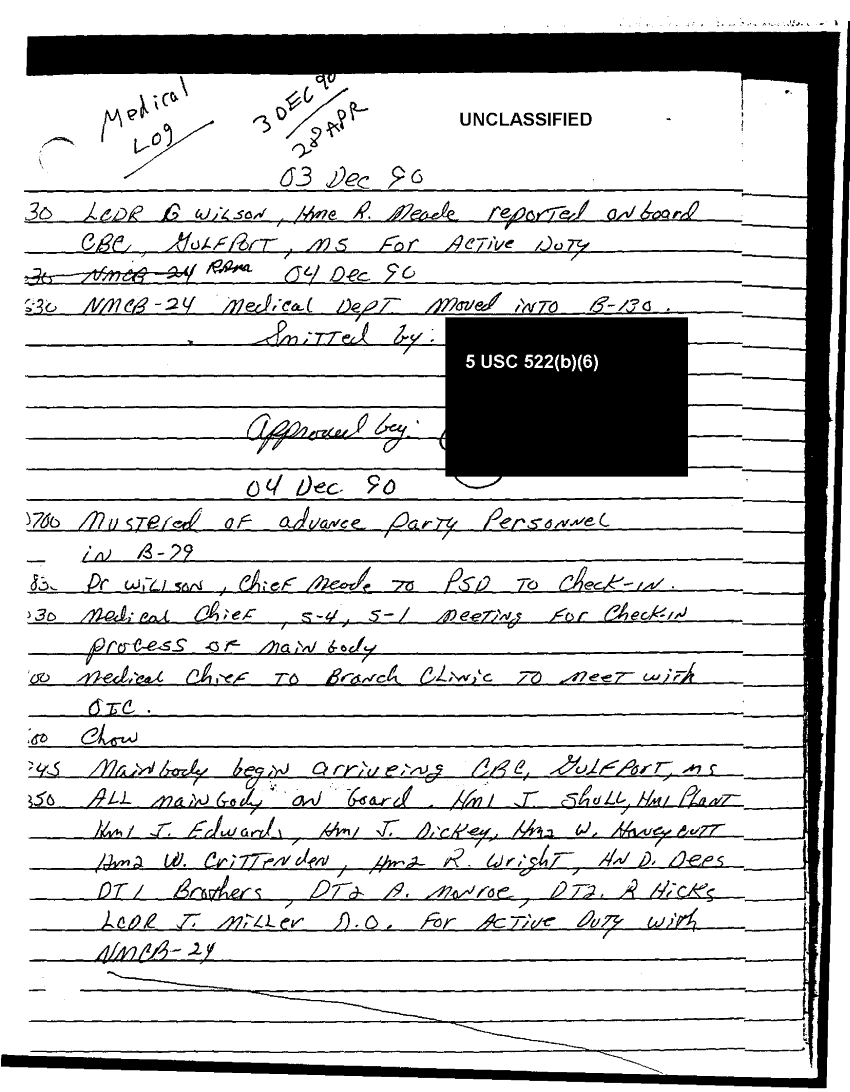 Medical
Log
3 DEC 90
28 APR
UNCLASSIFIED
03 Dec 90
30 LCDR G Wilson, Hmc R. Meade reported on board
CBC, GULFPORT, MS For Active Duty
30 NMCB-24 04 Dec 90
30 NMCB-24 Medical Dept. Moved into B-130.
Smitted by:
5 USC 522(b)(6)
Approved by:
04 Dec. 90
0700 Mustered of advance Party Personnel
in B-79
83 Dr Willson, Chief Meade To PSD To Check-in.
30 Medical Chief, S-4, S-1 Meeting For Check-in
process of main body
00 Medical Chief To Branch Clinic To Meet with
OIC.
00 Chow
45 Mainbody begin arriveing CBC, Gulfport, ms
350 ALL main body on board. Hm1 J. Shull, Hm1 Plant
Hm1 J. Edwards, Hm1 J. Dickey, Hm2 W. Honeycutt
Hm2 W. Crittenden, Hm2 R. Wright, HN D. Dees
DT1 Brothers, DT2 A. Monroe, DT2. R Hicks
LCDR J. Miller D.O. For Active Duty with
NMCB-24